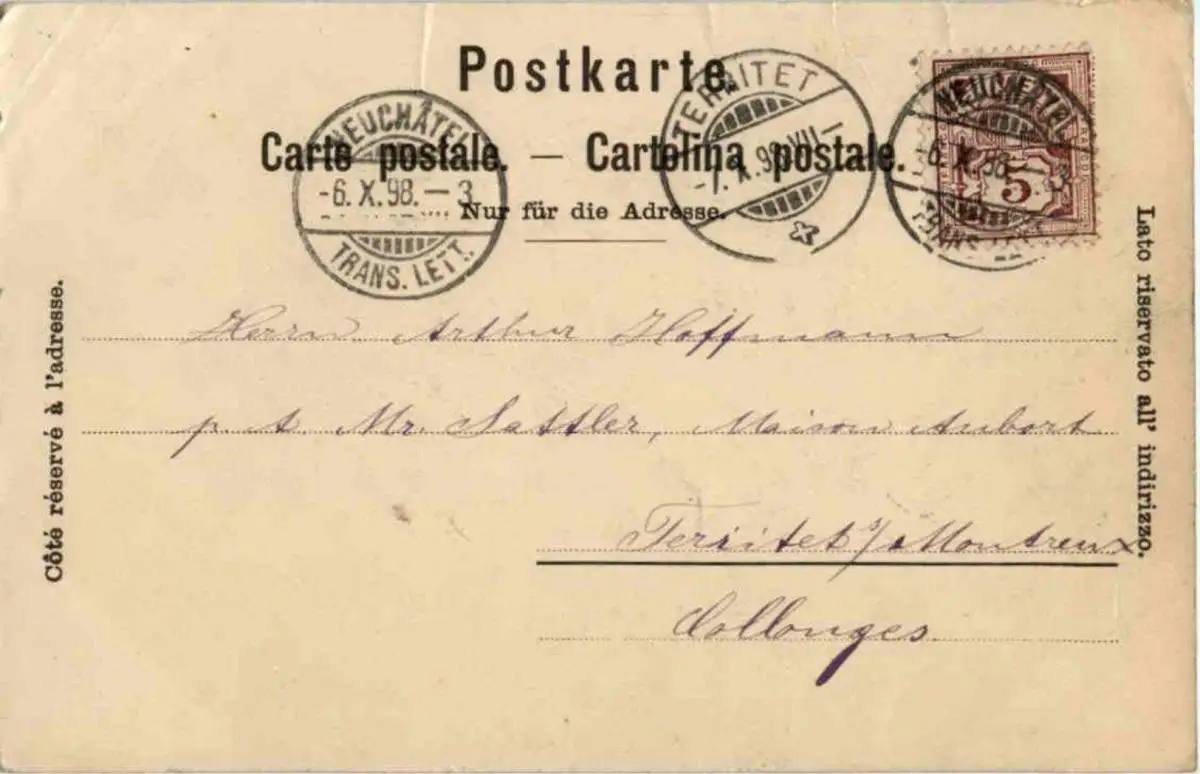 Postkarte
Carte postale. — Cartolina postale.
Nur für die Adresse.
NEUCHÂTEL
-6. X. 98. — 3
TRANS. LETT.
TERRITET
-7. X. 98. VII —
NEUCHÂTEL
-6. X. 98. — 3
TRANS. LETT.
5
Côté réservé à l'adresse.
Lato riservato all' indirizzo.
Herrn Arthur Hoffmann
p. A. Mr. Sattler, Maison Aubort
Territet s/Montreux
Collonges